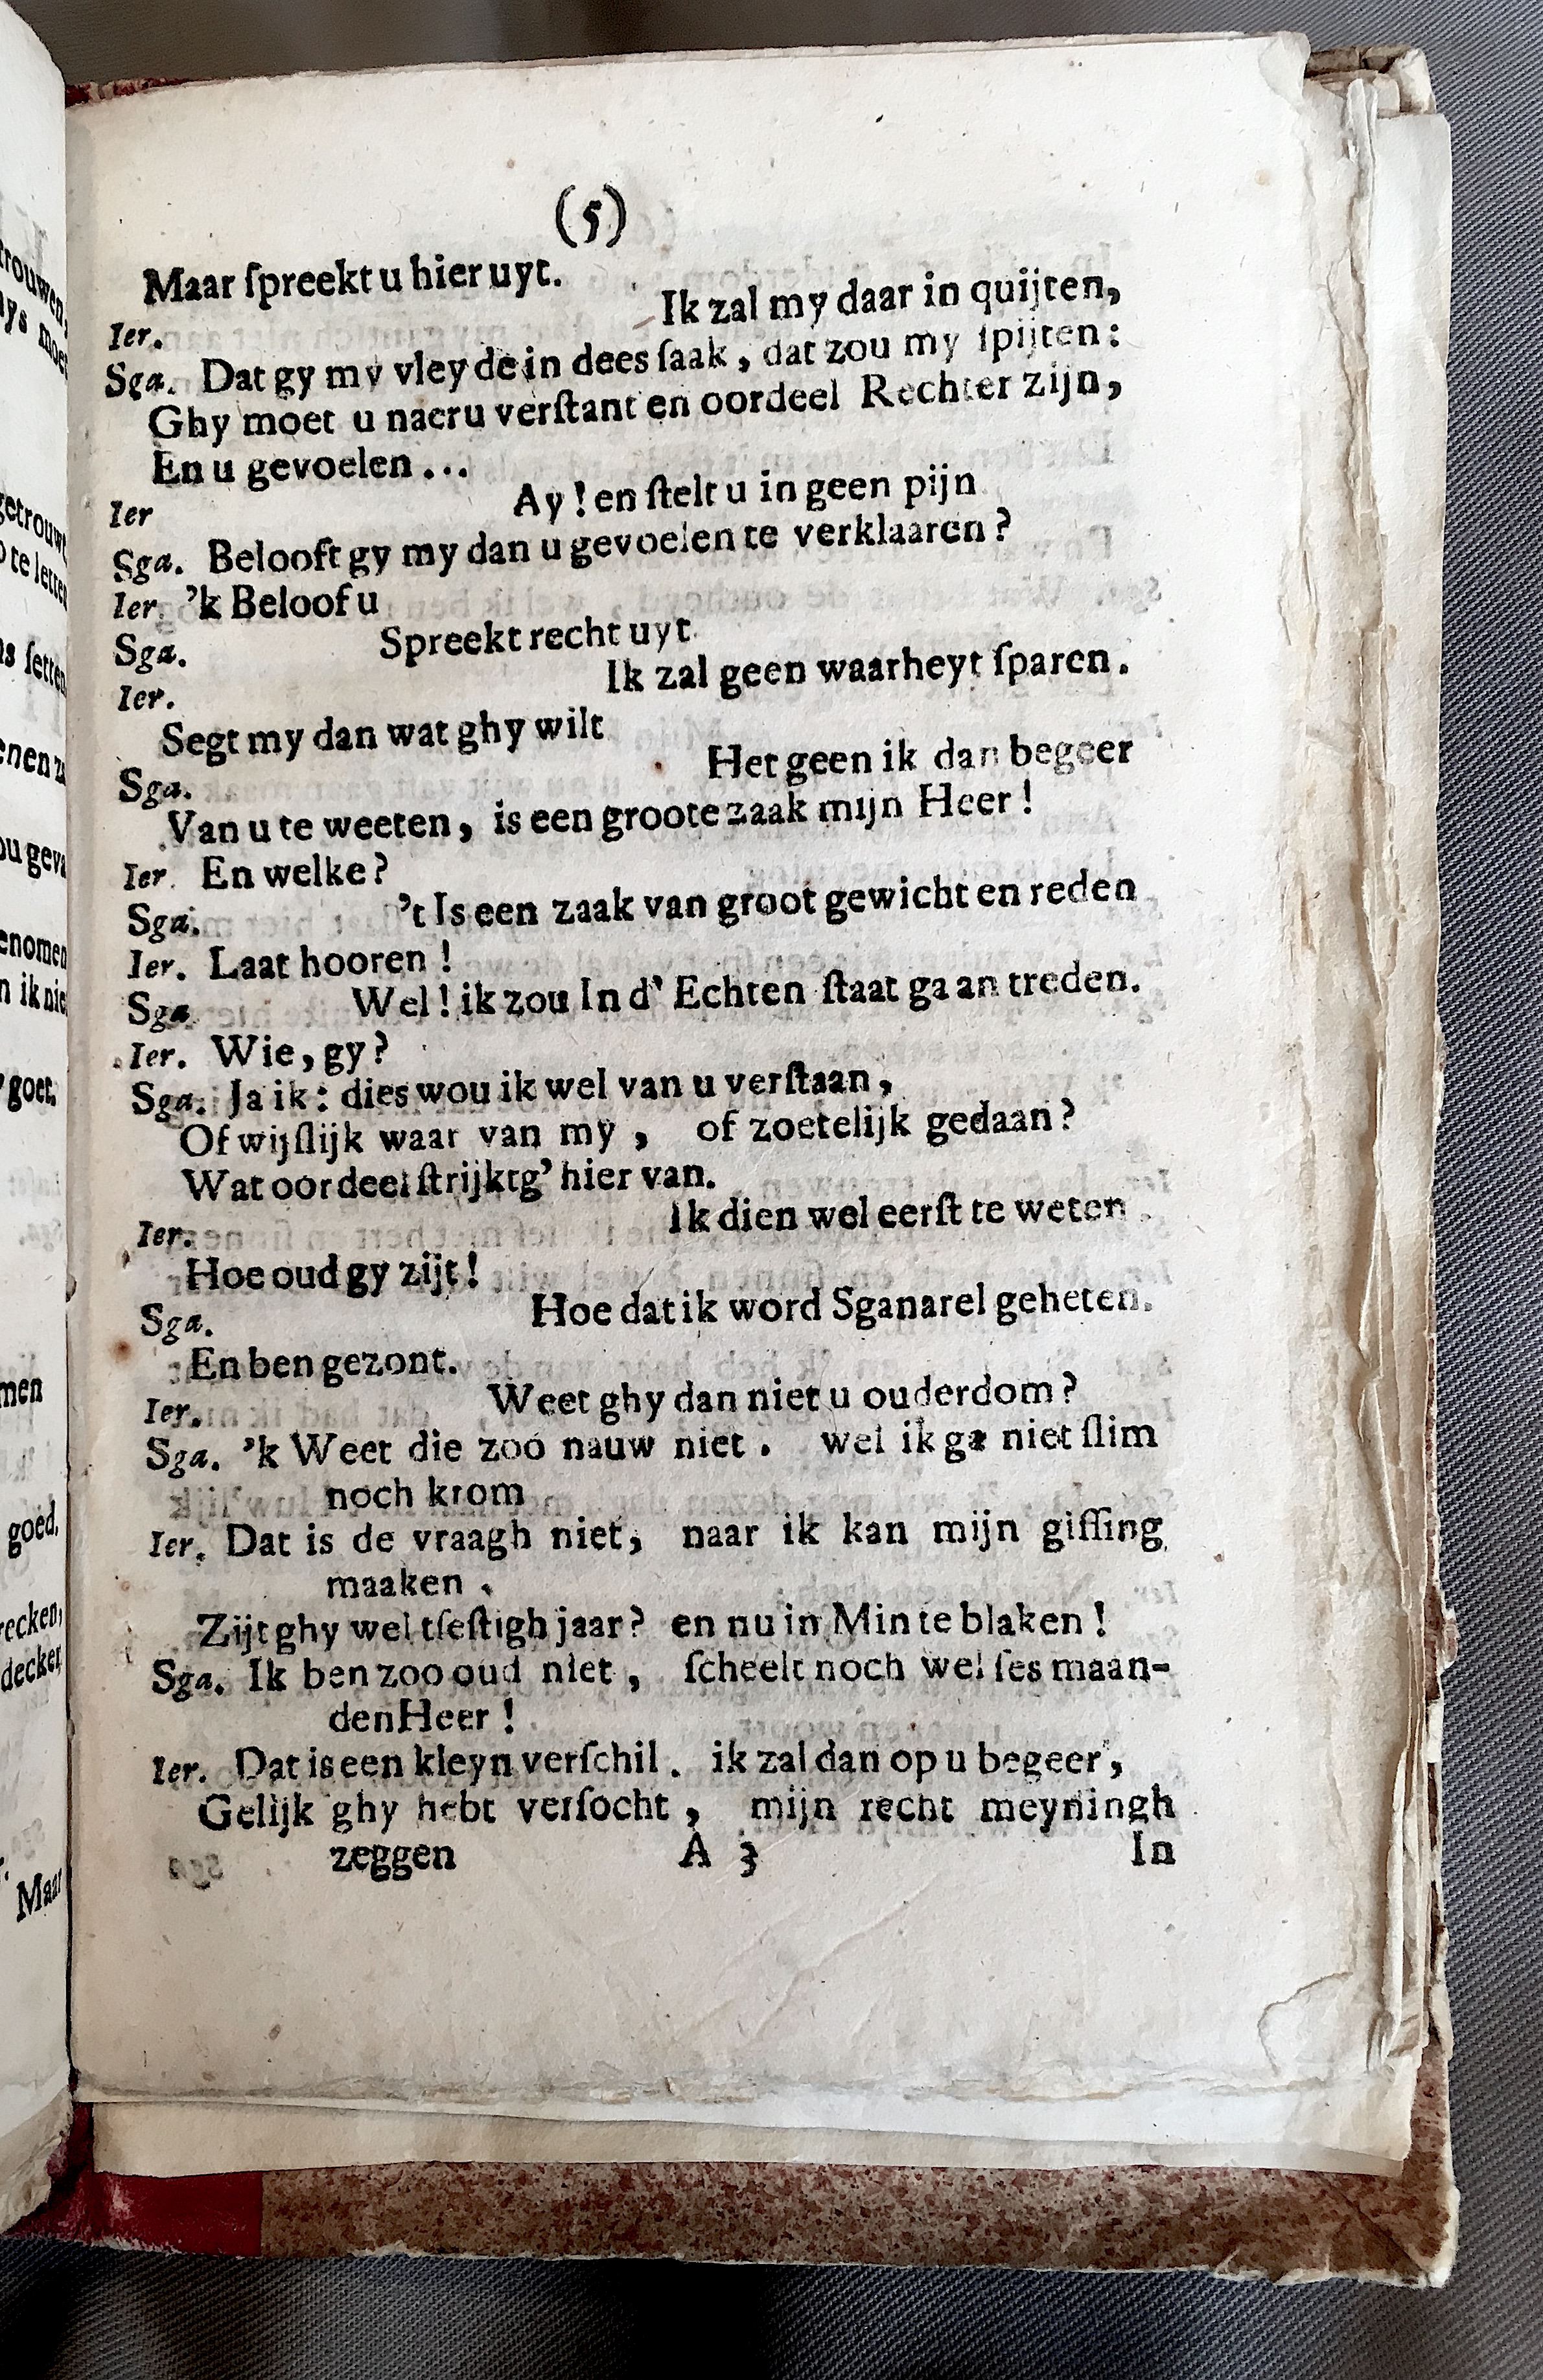 (5)
Maar ſpreekt u hier uyt.
Ier. Ik zal my daar in quijten,
Sga. Dat gy my vleyde in dees ſaak, dat zou my ſpijten:
Ghy moet u naer u verſtant en oordeel Rechter zijn,
En u gevoelen...
Ier Ay! en ſtelt u in geen pijn
Sga. Belooft gy my dan u gevoelen te verklaaren?
Ier. 'k Beloof u
Sga. Spreekt recht uyt
Ier. Ik zal geen waarheyt ſparen.
Segt my dan wat ghy wilt
Sga. Het geen ik dan begeer
Van u te weeten, is een groote zaak mijn Heer!
Ier. En welke?
Sga. 't Is een zaak van groot gewicht en reden
Ier. Laat hooren!
Sga. Wel! ik zou In d' Echten ſtaat gaan treden.
Ier. Wie, gy?
Sga. Ja ik: dies wou ik wel van u verſtaan,
Of wijſlijk waar van my, of zoetelijk gedaan?
Wat oordeel ſtrijktg' hier van.
Ier. Ik dien wel eerſt te weten.
Hoe oud gy zijt!
Sga. Hoe dat ik word Sganarel geheten.
En ben gezont.
Ier. Weet ghy dan niet u ouderdom?
Sga. 'k Weet die zoo nauw niet. wel ik ga niet ſlim
noch krom
Ier. Dat is de vraagh niet, naar ik kan mijn giſſing
maaken.
Zijt ghy wel tſeſtigh jaar? en nu in Min te blaken!
Sga. Ik ben zoo oud niet, ſcheelt noch wel ſes maan-
den Heer!
Ier. Dat is een kleyn verſchil. ik zal dan op u begeer,
Gelijk ghy hebt verſocht, mijn recht meyningh
zeggen A 3 In